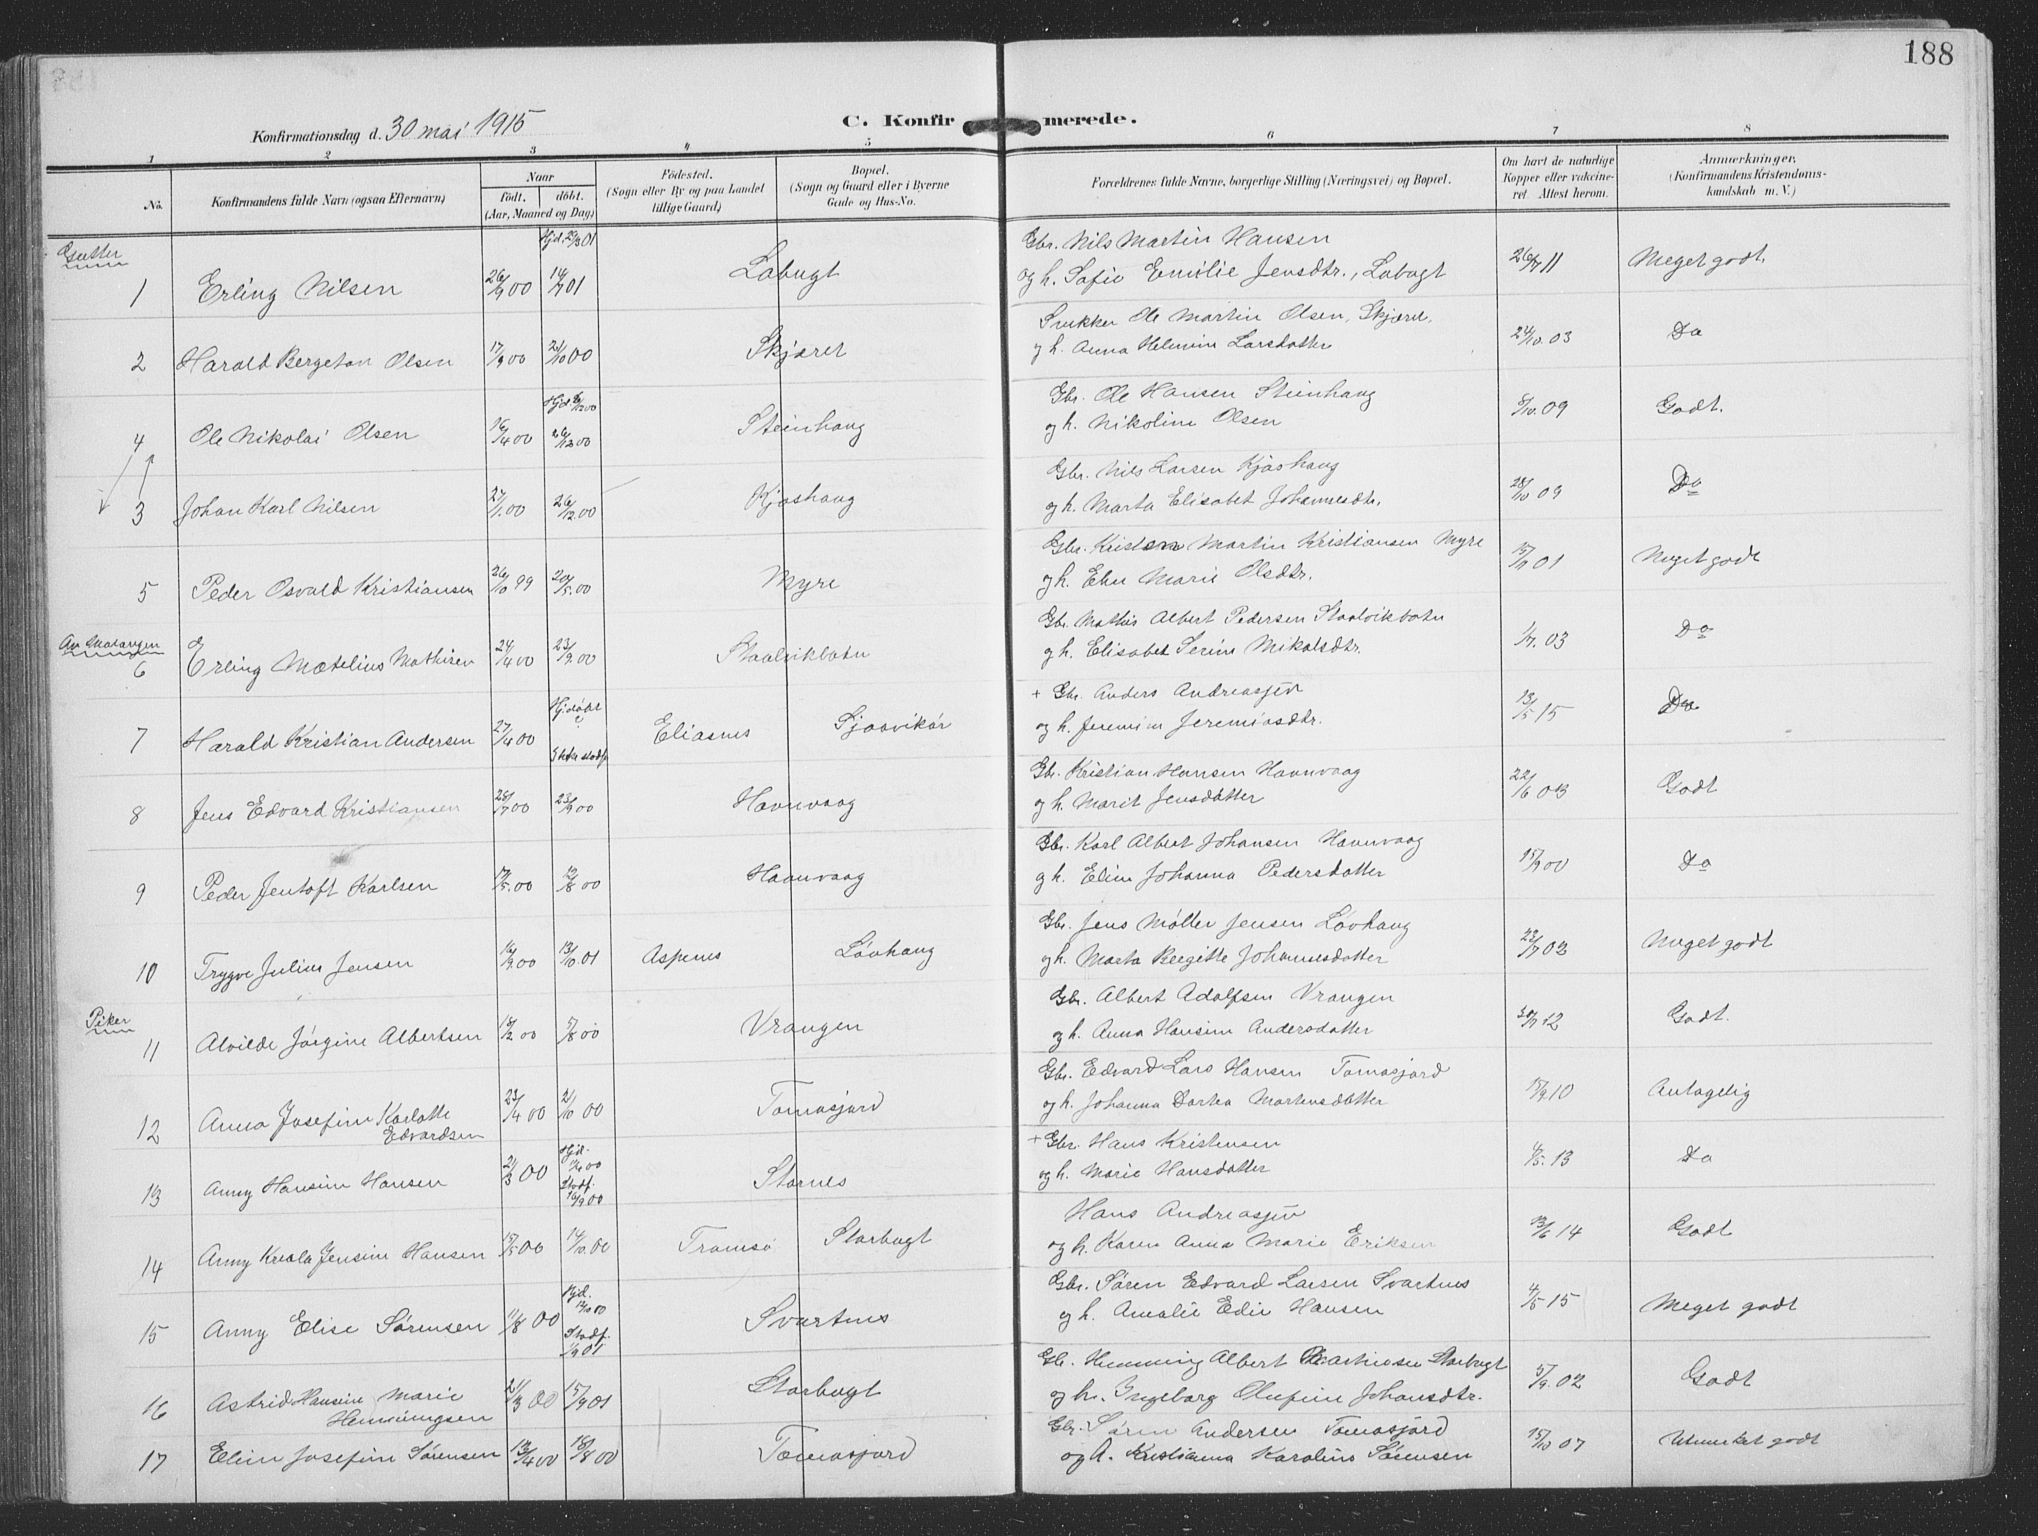 188
Konfirmationsdag d. 30 mai 1915
C. Konfirmerede.
1 2 3 4 5 6 7 8
No. Konfirmandens fulde Navn (ogsaa Efternavn). Naar födt. döbt. (Aar, Maaned og Dag) Födested. (Sogn eller By og paa Landet tillige Gaard.) Bopæl. (Sogn og Gaard eller i Byerne Gade og Hus-No. Forældrenes fulde Navne, borgerlige Stilling (Næringsvei) og Bopæl. Om havt de naturlige Kopper eller vakcineret. Attest herom. Anmærkninger. (Konfirmandens Kristendomskundskab m. V.)
Gutter
Hjd. 01
Gbr. Nils Martin Hansen
1 Erling Nilsen 26/9 00 14/7 01 Labugt og h. Sofie Emilie Jensdtr., Labugt 26/7 11 Meget godt.
Snekker Ole Martin Olsen, Skjæret
2 Harald Bergeton Olsen 17/9 00 21/10 00 Skjæret og h. Anna Helmine Larsdatter 24/10. 03 Do
Gbr. Ole Hansen Steinhaug
4 Ole Nikolai Olsen 16/4 00 26/12 00 Steinhaug og h. Nikoline Olsen 8/10. 09 Godt.
Gbr. Nils Larsen Kjoshaug
3 Johan Karl Nilsen 27/1. 00 26/12. 00 Kjoshaug og h. Marta Elisabet Johannesdtr. 28/10 09 Do
Gbr. Kristen Martin Kristiansen Myre
5 Peder Osvald Kristiansen 26/10 99 20/5. 00 Myre og h. Marie Olsdtr. 01 Meget godt
Gbr. Mathis Albert Pedersen Staalvikbotn
6 Erling Mætelius Mathisen 24/4 00 23/9. 00 Staalvikbotn og h. Elisabet Serine Nikolsdtr. 1/7. 03 Do
+ Gbr. Anders Andreassen
7 Harald Kristian Andersen 27/4 00 Hjdøbt Eliasnes Sjoavikør og h. Jeremiasdtr. 13/5 15 Do
Gbr. Kristian Hansen Havnvaag
8 Jens Edvard Kristiansen 28/7 00 23/9 00 Havnvaag og h. Marit Jensdatter 22/6 03 Godt
Gbr. Karl Albert Johansen Havnvaag
9 Peder Jentoft Karlsen 17/5. 00 12/8 00 Havnvaag og h. Eline Johanna Pedersdatter 15/9 00 Do
Gbr. Jens Møller Jensen Løvhaug
10 Trygve Julius Jensen 16/9. 00 13/10. 01 Aspenes Løvhaug og h. Marta Bergitte Johannesdatter 23/7 03 Meget godt
Piker
Gbr. Albert Adolfsen Vrangen
11 Alvilde Jørgine Albertsen 18/2 00 5/8 00 Vrangen og h. Anna Hansine Andersdatter 12 Godt.
Gbr. Edvard Lars Hansen Tomasjord
12 Anna Josefine Karlotte Edvardsen 23/4 00 21/10 00 Tomasjord og h. Johanna Dortea Martensdatter 15/9 10 Antagelig
+ Gbr. Hans Kristensen
13 Anny Hansine Hansen 21/3 00 Hjd. Stadf. 16/9 00 Stornes og h. Marie Hansdatter 4/5. 13 Do
Hans Andreassen
14 Anny Jensine Hansen 15/5 00 14/10. 00 Tromsø Storbugt og h. Karen Anna Marie Eriksen 13/6 14 Godt
Gbr. Søren Edvard Larsen Svartnes
15 Anny Elise Sørensen 11/8 00 Hjd. Stadf. 01 Svartnes og h. Amalie Edie Hansen 4/5 15 Meget godt
Gbr. Hemming Albert Storbugt
16 Astrid Hansine Marie Hemmingsen 21/3 00 15/9 01 Storbugt og h. Ingeborg Olufine Johansdtr. 5/9. 02 Godt
Gbr. Søren Andersen Tomasjord
17 Eline Josefine Sørensen 13/4 00 18/8 00 Tomasjord og h. Kristianna Karoline Sørensen 15/10 07 Utmerket godt